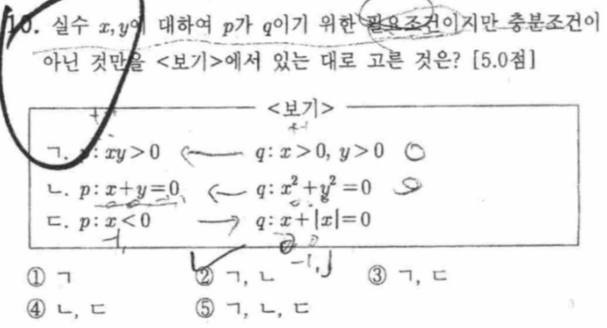 10. 실수 x, y에 대하여 p가 q이기 위한 필요조건이지만 충분조건이
아닌 것만을 <보기>에서 있는 대로 고른 것은? [5.0점]
<보기>
ㄱ. p: xy>0 ← q: x>0, y>0 ○
ㄴ. p: x+y=0 ← q: x²+y²=0
ㄷ. p: x<0 → q: x+|x|=0
① ㄱ ② ㄱ, ㄴ ③ ㄱ, ㄷ
④ ㄴ, ㄷ ⑤ ㄱ, ㄴ, ㄷ